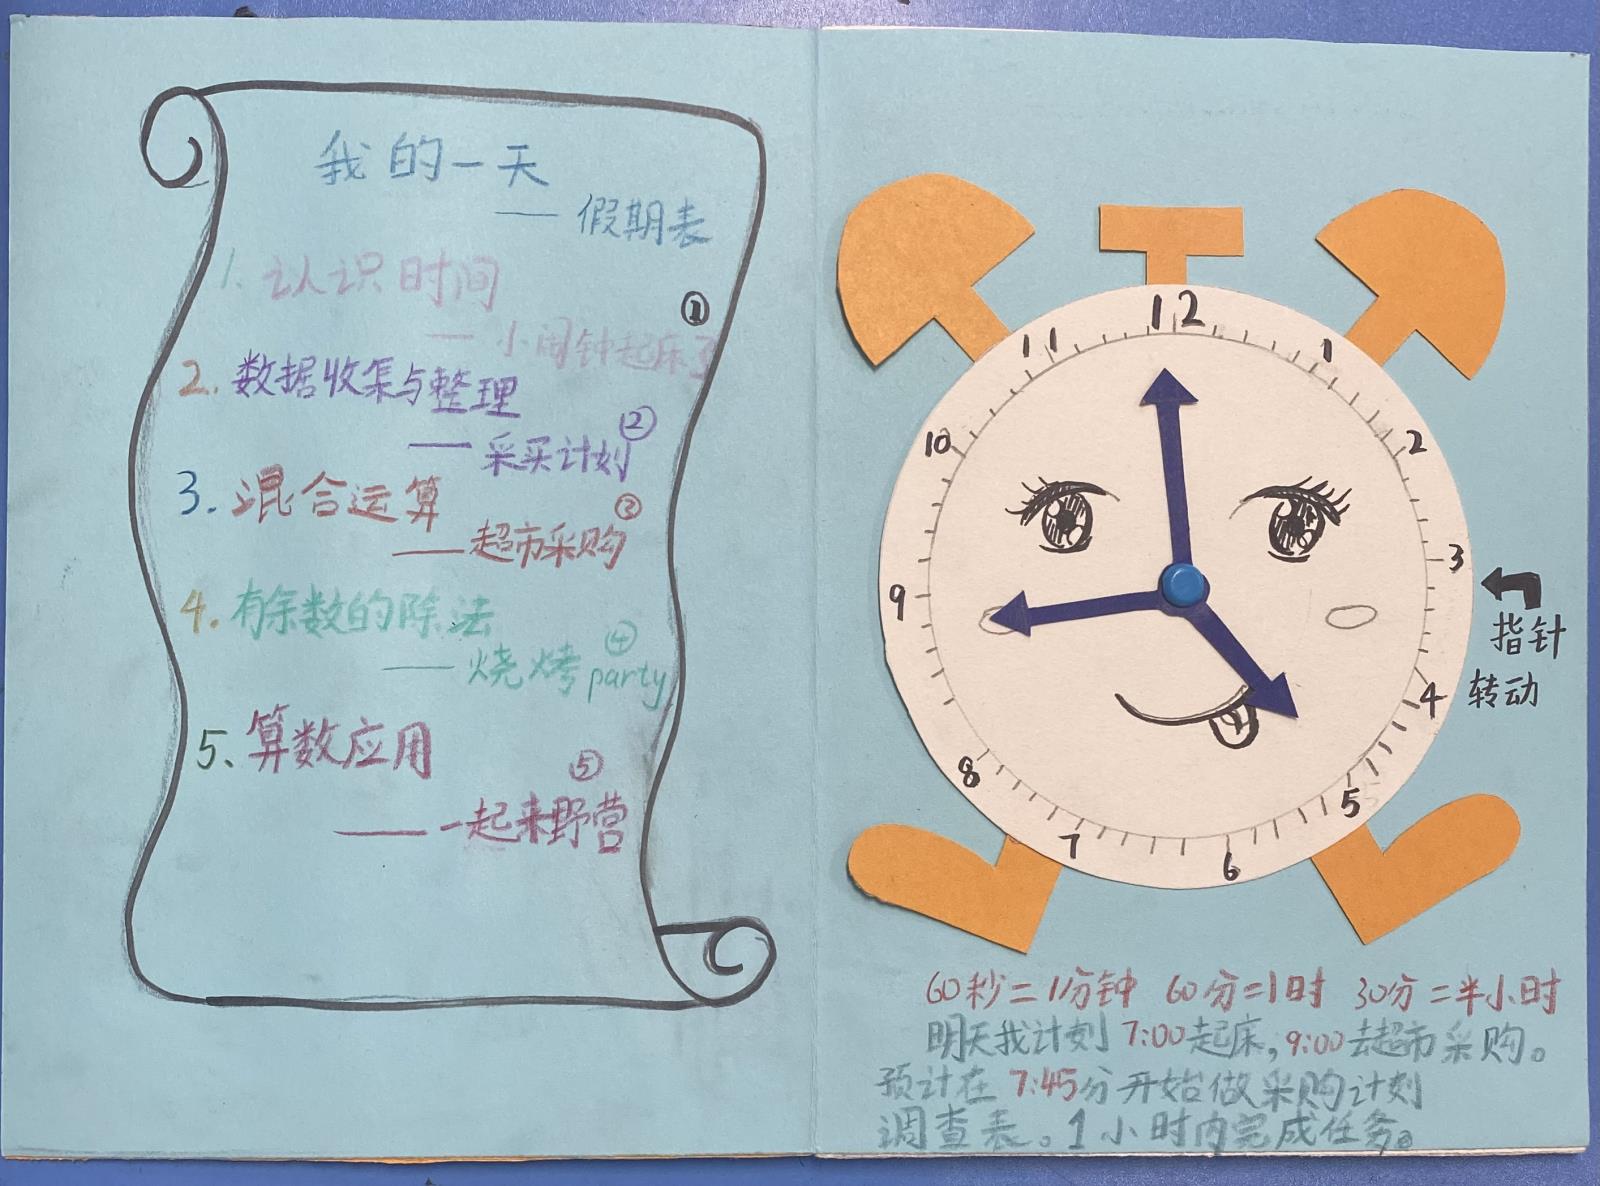 我的一天
——假期表
1.认识时间
①
——小闹钟起床了
2.数据收集与整理
②
——采买计划
3.混合运算
③
——超市采购
4.有余数的除法
④
——烧烤party
5、算数应用
⑤
——一起来野营
12
11
1
10
2
9
3
8
4
7
5
6
指针
转动
60秒=1分钟 60分=1时 30分=半小时
明天我计划7:00起床,9:00去超市采购。
预计在7:45分开始做采购计划
调查表。1小时内完成任务。